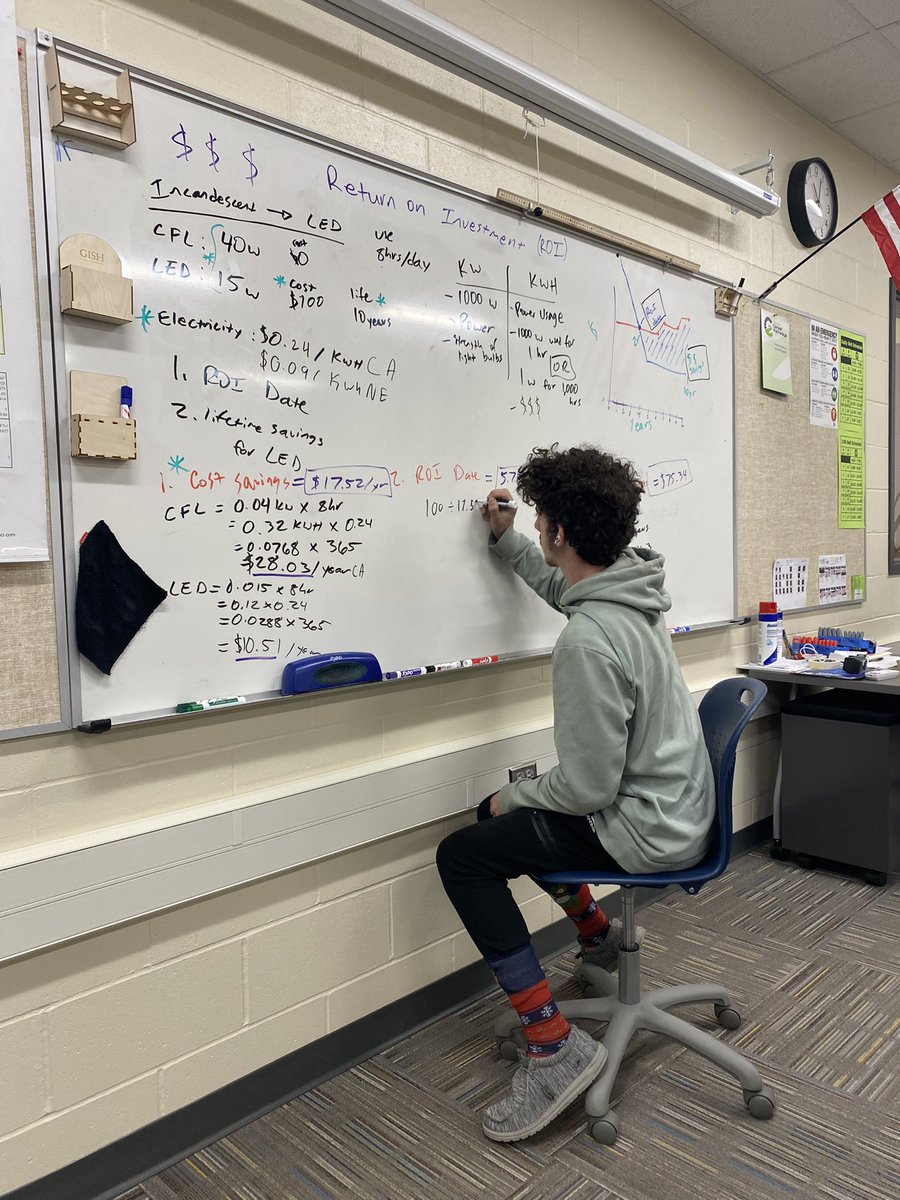 $ $ $
Return on Investment (ROI)
Incandescent → LED
CFL: 40w
LED: 15w
Cost
$0
* Cost
$100
use
8hrs/day
life *
10 years
* Electricity: $0.24/KWH CA
$0.09/KWH NE
1. ROI Date
2. lifetime savings
for LED
KW
- 1000 w
- Power
- strength of
light bulbs
KWH
- Power Usage
- 1000 w used for
1 hr
OR
1 w for 1,000
hrs
- $$$
Years
10yr
*
1. Cost savings = $17.52/yr
2. ROI Date = 5.7
= $75.34
100 ÷ 17.5
CFL = 0.04 kw x 8hr
= 0.32 KWH x 0.24
= 0.0768 x 365
$28.03/year CA
LED = 0.015 x 8hr
= 0.12 x 0.24
= 0.0288 x 365
= $10.51/year
GISH
EXPO
IN AN EMERGENCY